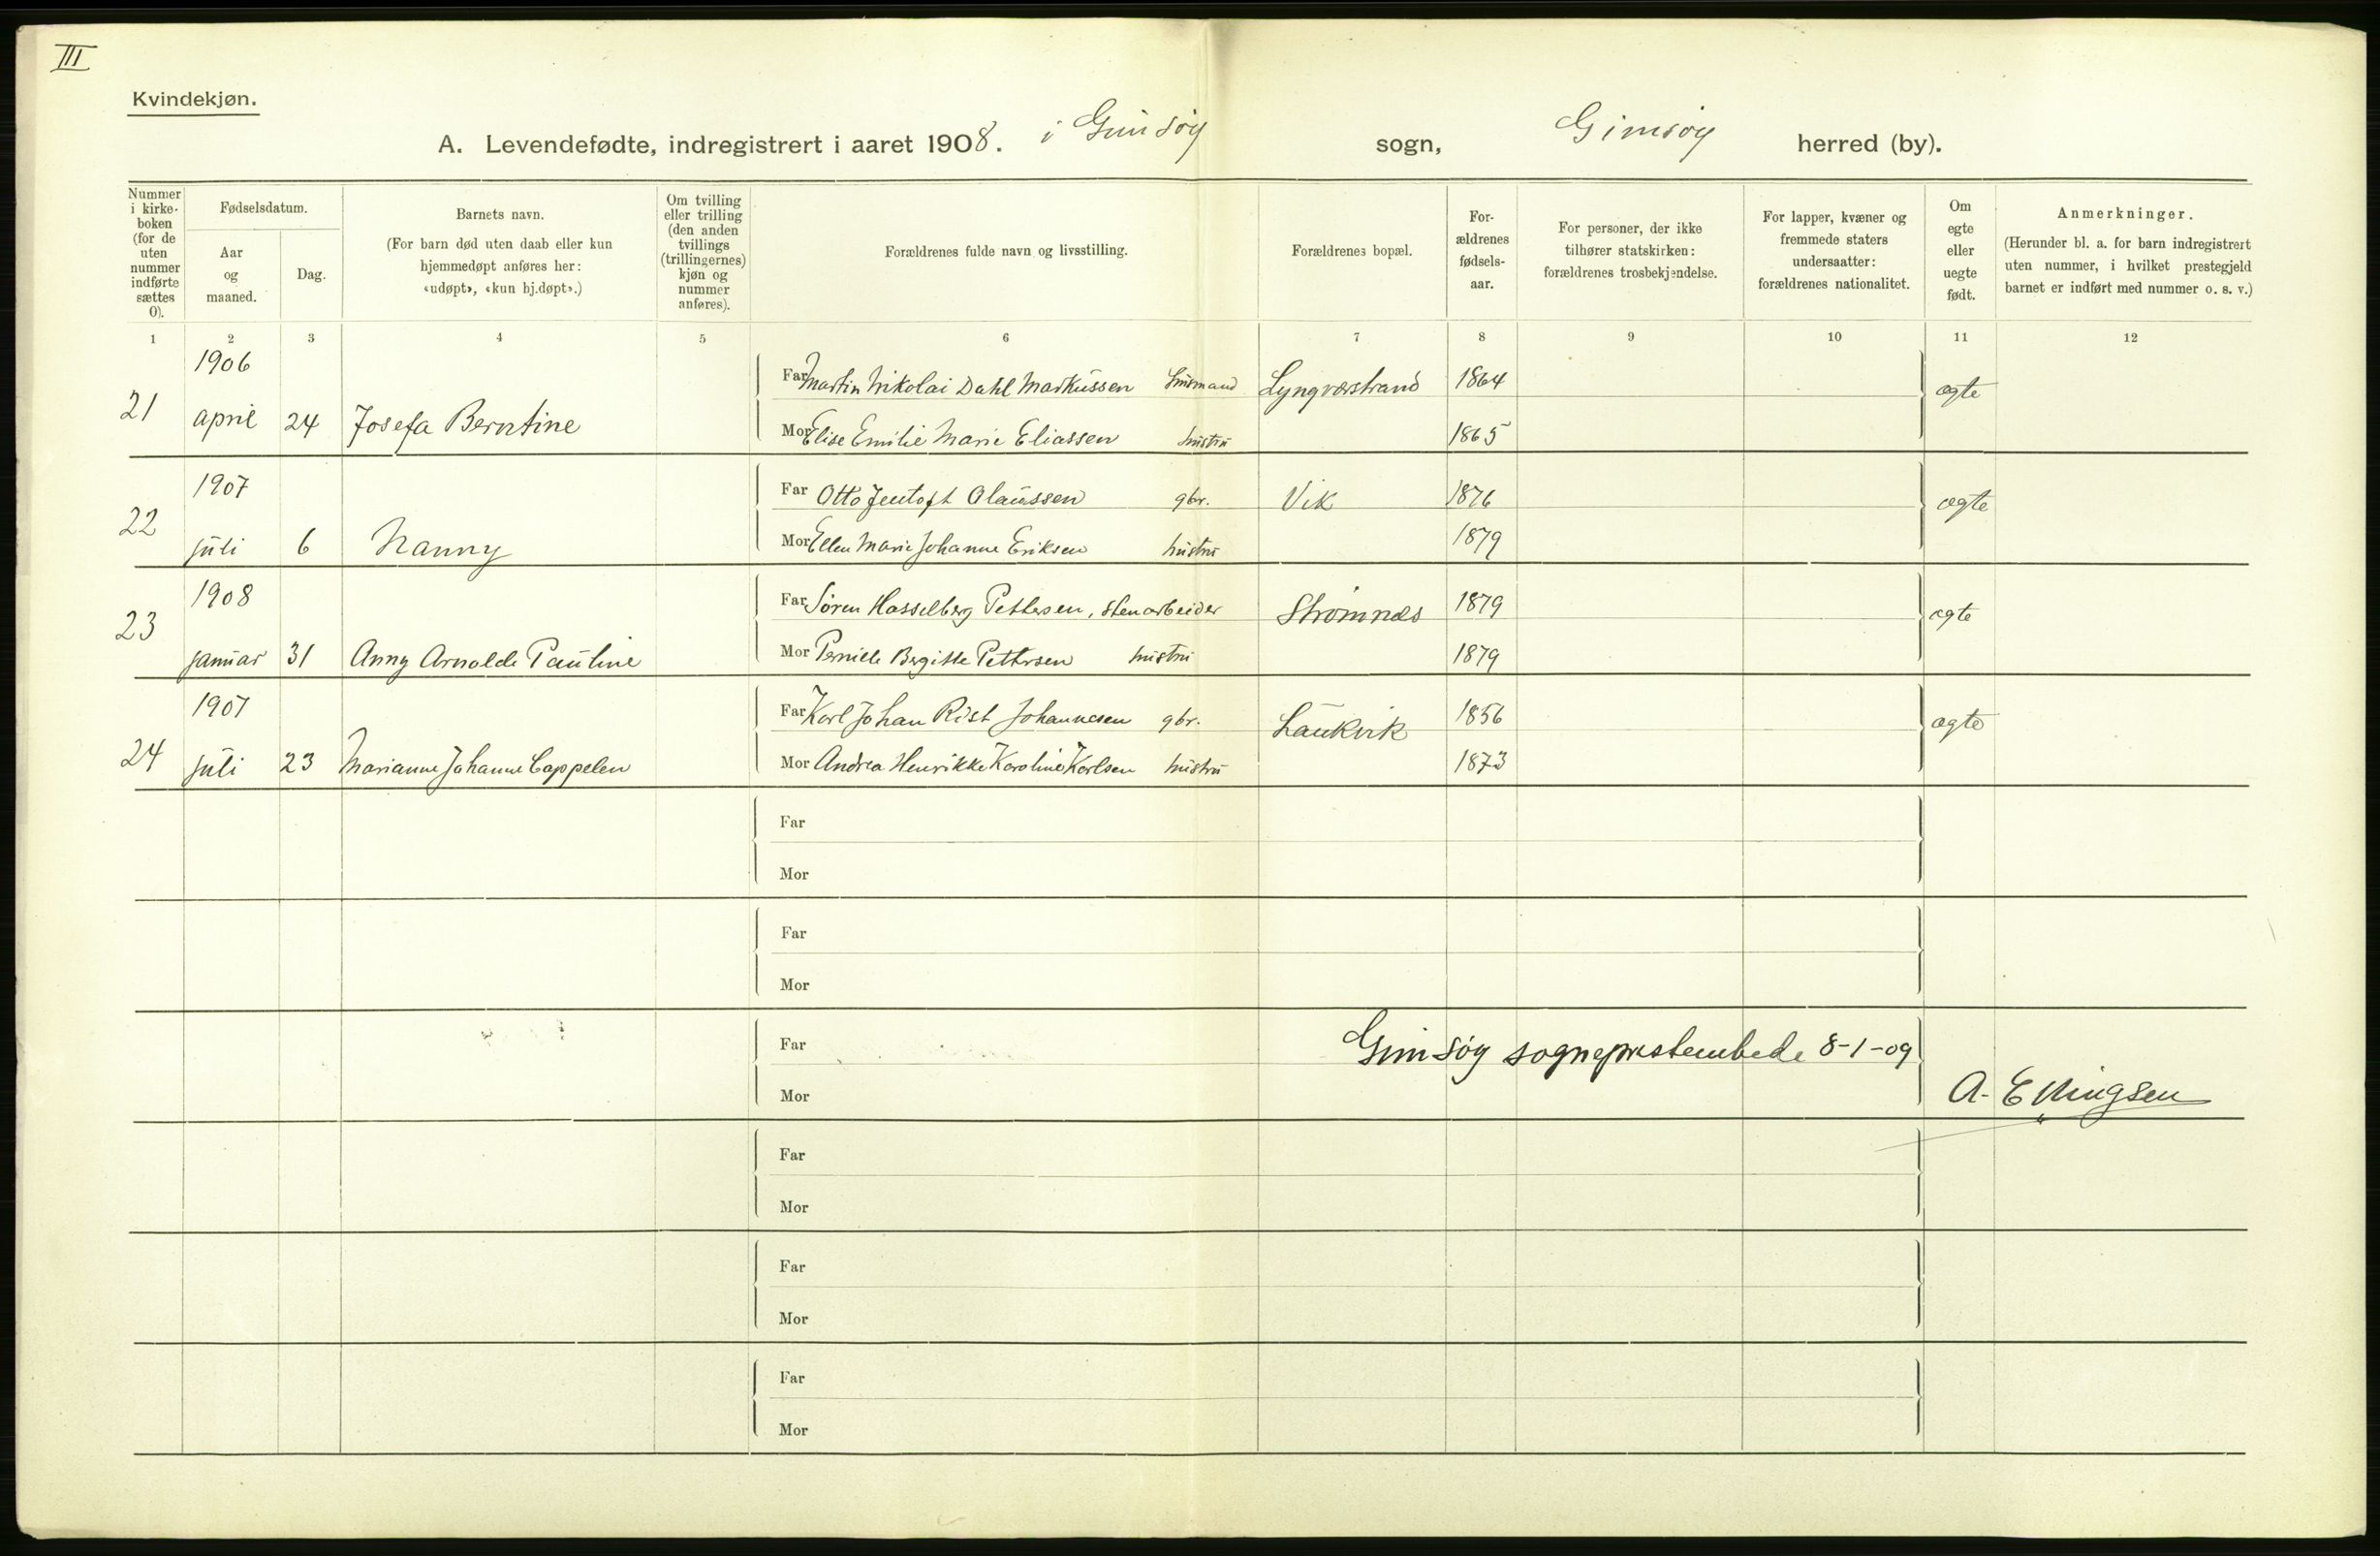 III
Kvindekjøn.
A. Levendefødte, indregistrert i aaret 1908. i Gimsøy sogn, Gimsøy herred (by).
Nummer i kirke-boken (for de uten nummer indførte sættes 0).
Fødselsdatum.
Aar og maaned.
Dag.
Barnets navn.
(For barn død uten daab eller kun hjemmedøpt anføres her: «udøpt», «kun hj.døpt».)
Om tvilling eller trilling (den anden tvillings (trillingernes) kjøn og nummer anføres).
Forældrenes fulde navn og livsstilling.
Forældrenes bopæl.
For-ældrenes fødsels-aar.
For personer, der ikke tilhører statskirken: forældrenes trosbekjendelse.
For lapper, kvæner og fremmede staters undersaatter: forældrenes nationalitet.
Om egte eller uegte født.
Anmerkninger.
(Herunder bl. a. for barn indregistrert uten nummer, i hvilket prestegjeld barnet er indført med nummer o. s. v.)
1 2 3 4 5 6 7 8 9 10 11 12
1906
Far Martin Nikolai Dahl Markussen husmand Lyngværstrand 1864 ægte
21 april 24 Josefa Berntine
Mor Elise Emilie Marie Eliassen hustru 1865
1907
Far Otto Jentoft Olaussen gbr. Vik 1876 ægte
22 juli 6 Nanny
Mor Ellen Marie Johanne Eriksen hustru 1879
1908
Far Søren Hasselberg Pettersen, stenarbeider Strømnes 1879 ægte
23 januar 31 Anny Arnolde Pauline
Mor Pernille Bergitte Pettersen hustru 1879
1907
Far Karl Johan Rist Johannesen gbr. Laukvik 1856 ægte
24 juli 23 Marianne Johanne Cappelen
Mor Andrea Henrikke Karoline Karlsen hustru 1873
Far
Mor
Far
Mor
Far
Gimsøy sogneprestembede 8-1-09
Mor
A. Ellingsen
Far
Mor
Far
Mor
Far
Mor